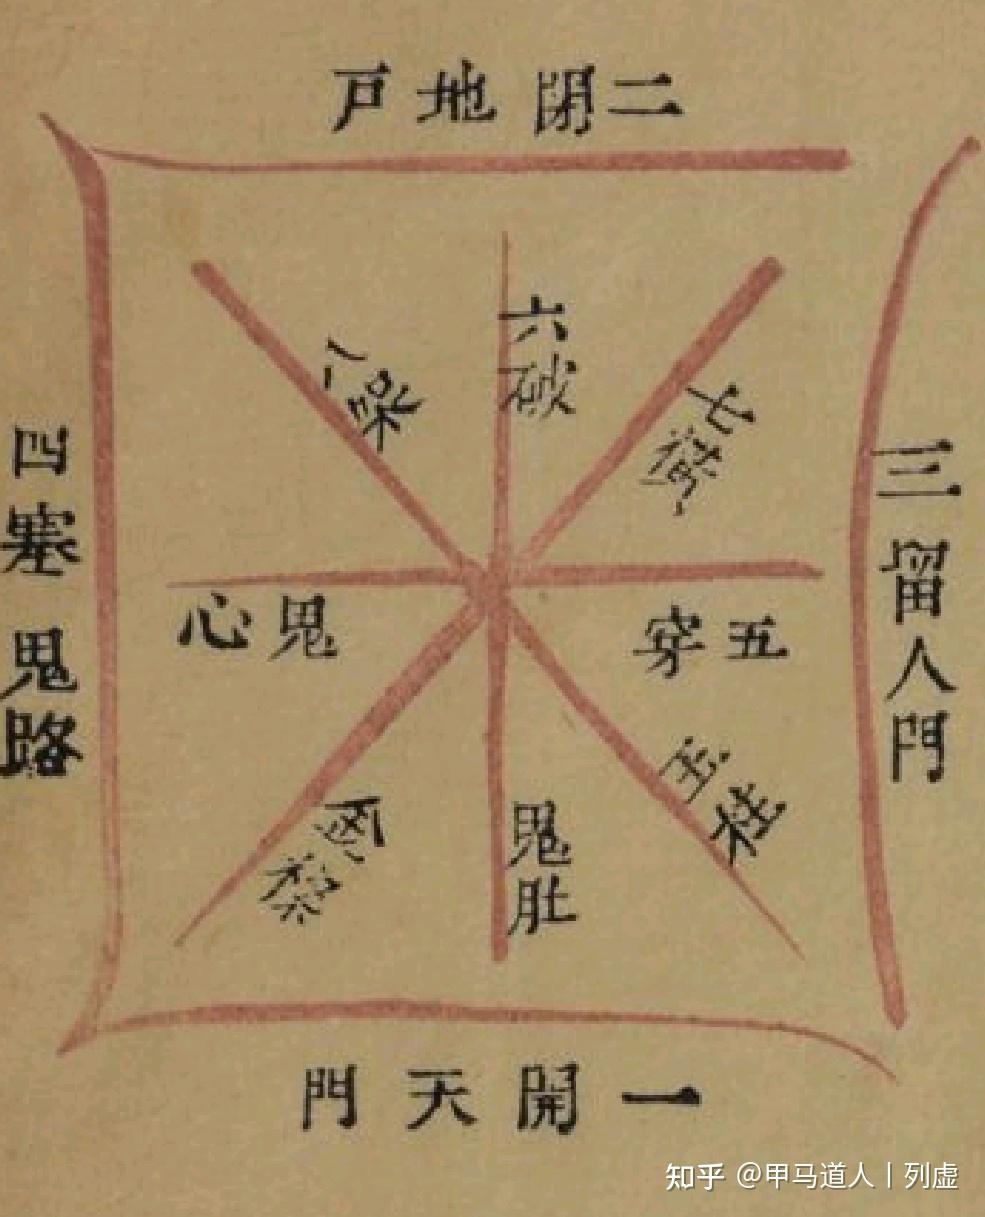 二閉地戶
三留人門
四塞鬼路
一開天門
五穿鬼心
六破鬼肚
七
八
知乎 @甲马道人丨列虚